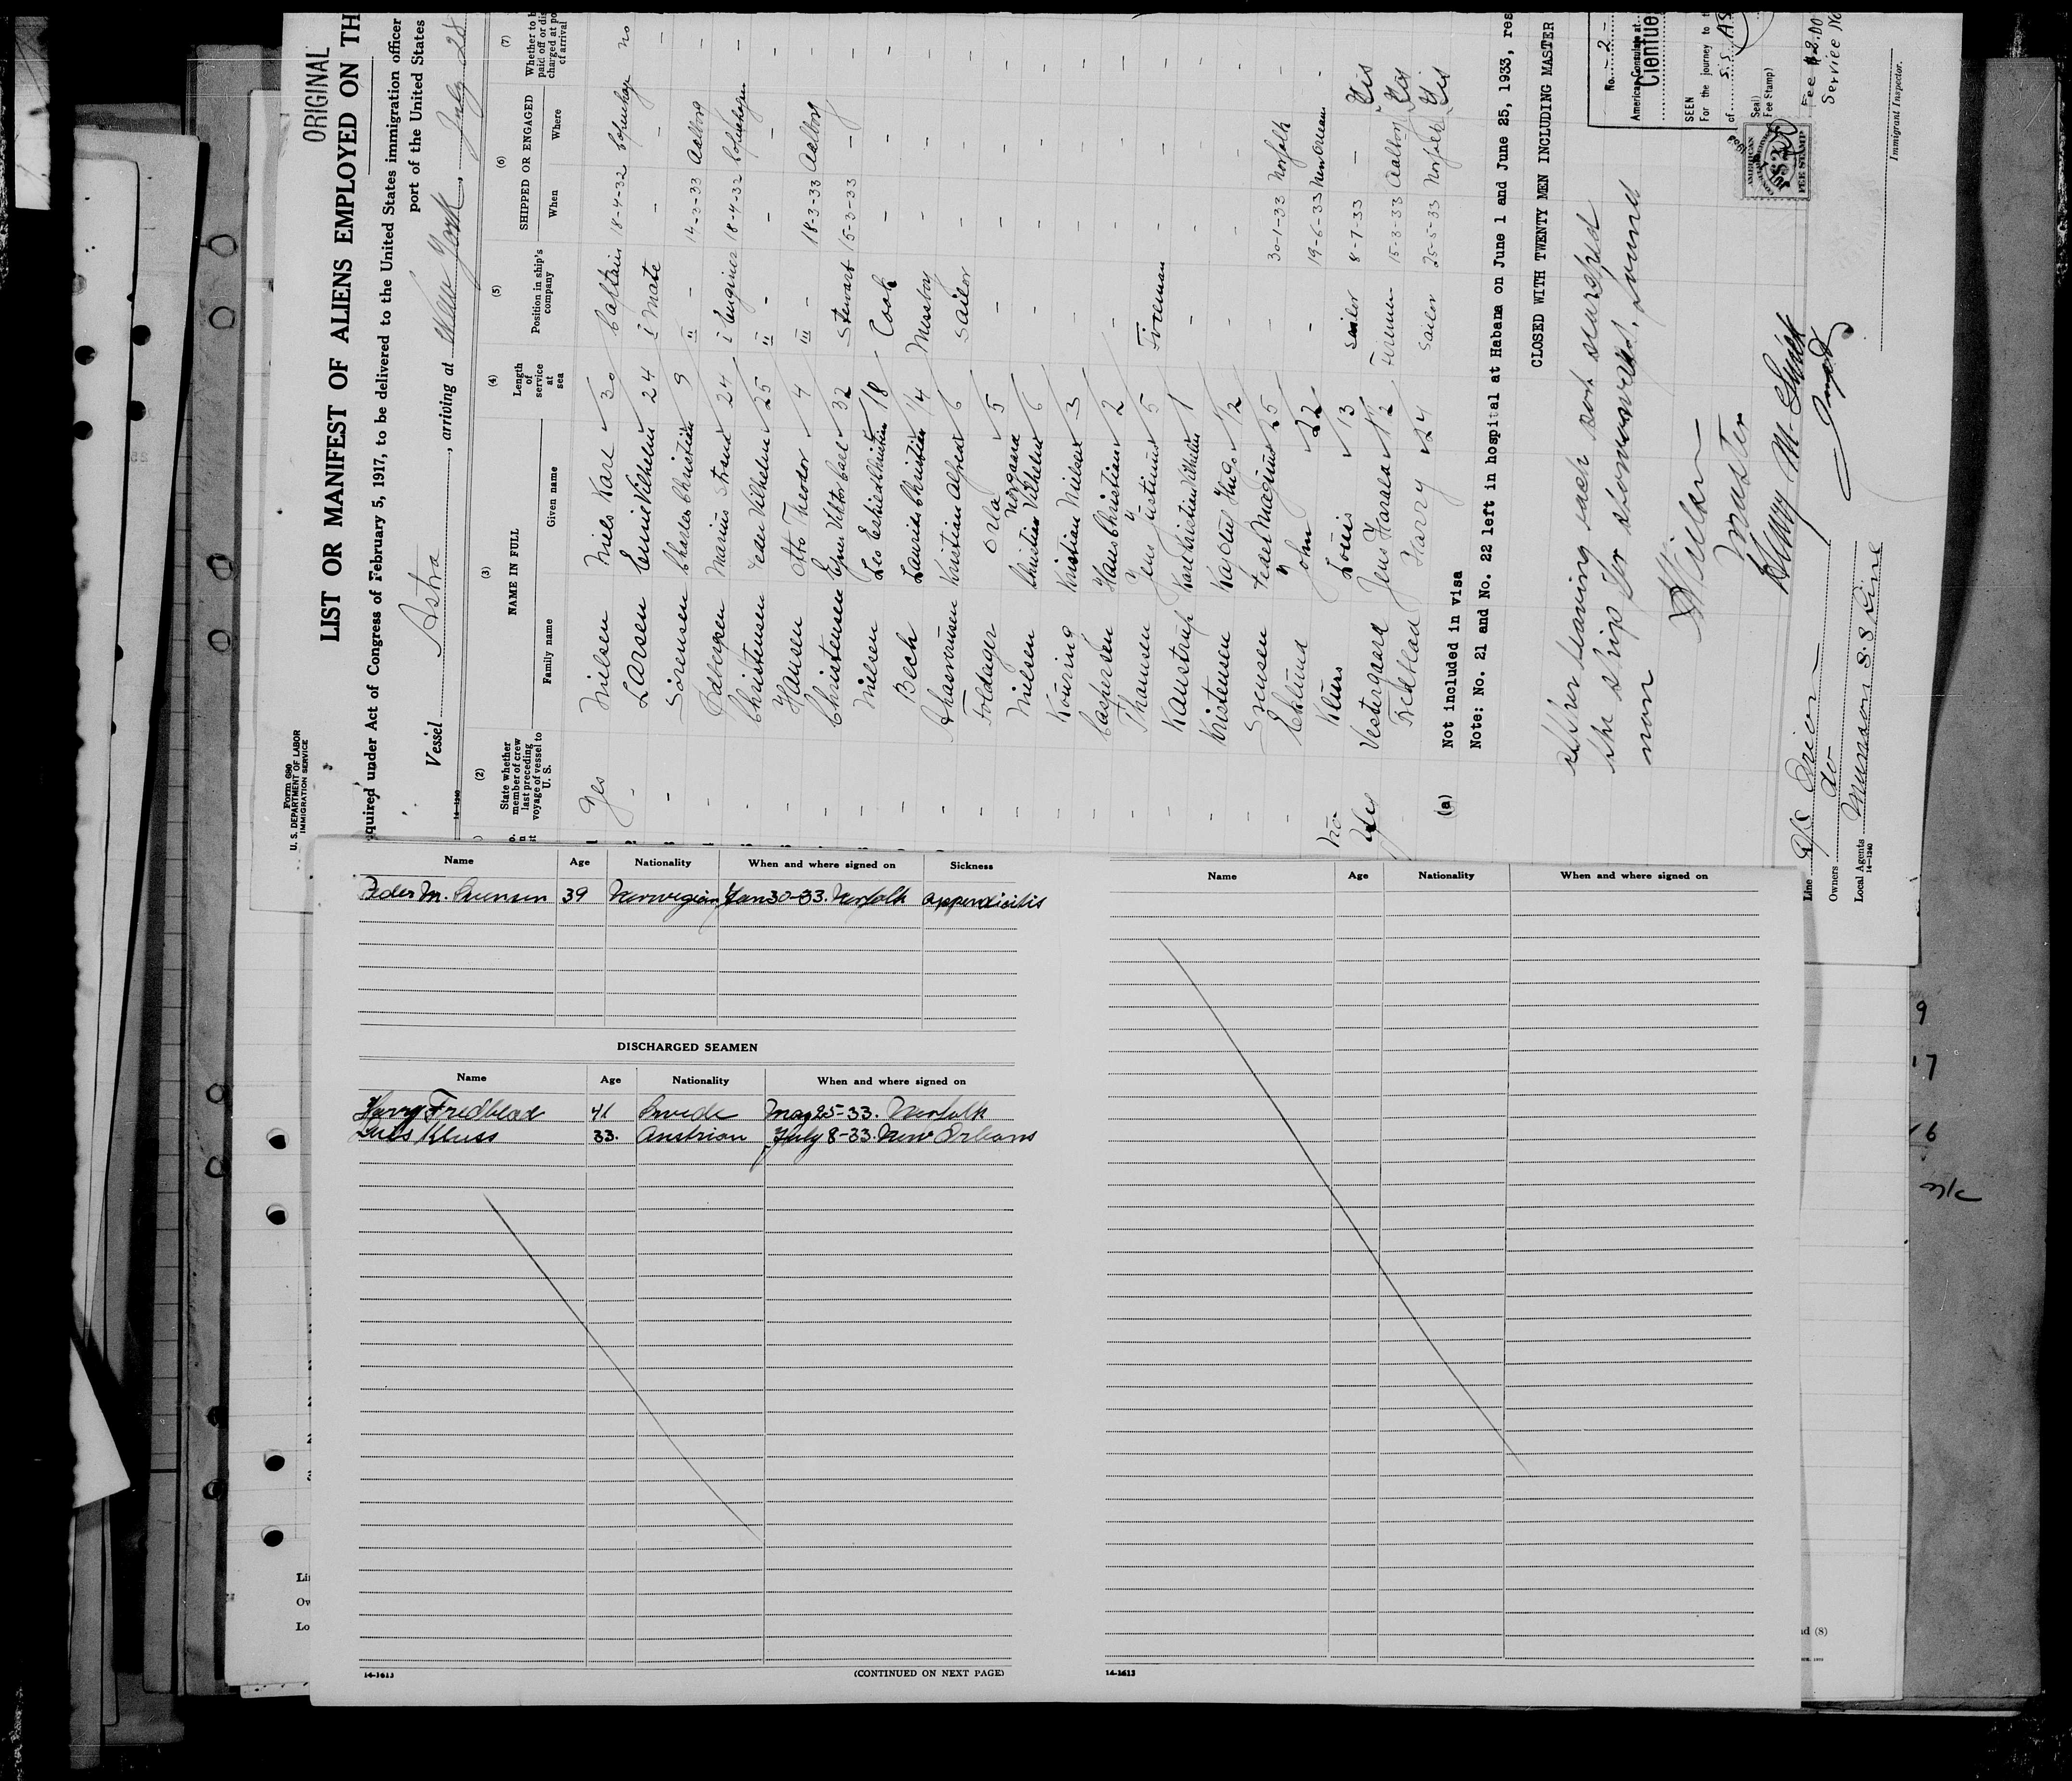 ORIGINAL
Form 680
U. S. DEPARTMENT OF LABOR
IMMIGRATION SERVICE
LIST OR MANIFEST OF ALIENS EMPLOYED ON TH
quired under Act of Congress of February 5, 1917, to be delivered to the United States immigration officer
port of the United States
Vessel Astra, arriving at New York, July 28
14-1240
(2) (3) (4) (5) (6) (7)
State whether member of crew last preceding voyage of vessel to U. S.
NAME IN FULL
Family name Given name
Length of service at sea
Position in ship's company
SHIPPED OR ENGAGED
When Where
Whether to b paid off or dis charged at po of arrival
Yes Nielsen Niels Karl 30 Captain 18-4-32 Copenhage no
- Larsen Emil Vilhelm 24 I Mate - - -
- Sörensen Charles Christian 9 II - 14-3-33 Aalborg -
- Marius Strand 24 I Enginer 18-4-32 Copenhagen -
- Christensen Peder Vilhelm 25 II - - -
- Hansen Otto Theodor 4 III - 18-3-33 Aalborg -
- Christensen Ejner Viktor Carl 32 Stewart 15-3-33 - -
- Nielsen Leo Christian 18 Cook - - -
- Bech Laurids Christian 14 Messboy - - -
- Kristian Alfred 6 Sailor - - -
- Foldager Orla 5 - - - -
- Nielsen Christian Vilhelm Nörgaard 6 - - - -
- Kouring Kristian Nielsen 3 - - - -
- Caspersen Hans Christian 2 - - - -
- Thausen Jens Justinus 5 Fireman - - -
- Kaustrup Karl Kristian Vilhelm 1 - - - -
- Kristensen 1/2 - - - -
- Svensen Peder Magnus 25 - 30-1-33 Norfolk -
Eklund John 22 - 19-6-33 New Orleans -
no Kluss Louis 13 Sailor 8-7-33 - Yes
Yes Vestergaard Jens Harald 1/2 Firemen 15-3-33 Aalborg Yes
- Fredblad Harry 24 Sailor 25-5-33 Norfolk Yes
(a) Not included in visa
Note: No. 21 and No. 22 left in hospital at Habana on June 1 and June 25, 1933, res
CLOSED WITH TWENTY MEN INCLUDING MASTER
After leaving each port searched
the ship for stowaways, found
non
Master
No. - 2 -
American Consulate at
Cienfue
SEEN
For the journey to t
of S.S. AS
Seal)
Fee Stamp)
Fee $2.00
Service No
AMERICAN
FEE STAMP
Immigrant Inspector.
Line
Owners do
Local Agents Munson S.S Line
14-1240
Name Age Nationality When and where signed on Sickness
Peder M. Svensen 39 Norwegian Jan 30-33. Norfolk appendicitis
DISCHARGED SEAMEN
Name Age Nationality When and where signed on
Harry Fredblad 41 Swede May 25-33. Norfolk
Luis Kluss 33. Austrian July 8-33. New Orleans
14-1613
(CONTINUED ON NEXT PAGE)
Name Age Nationality When and where signed on
14-1613
9
17
16
Li
Ow
Lo
nd (8)